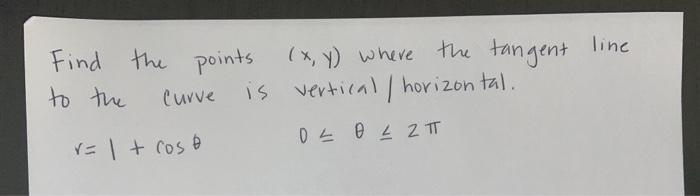 Find the points (x, y) where the tangent line
to the curve is vertical / horizontal.
r = 1 + cos θ 0 ≤ θ ≤ 2π